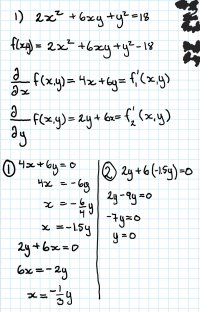 1) 2x² + 6xy + y² = 18
f(x,y) = 2x² + 6xy + y² - 18
∂/∂x f(x,y) = 4x + 6y = f₁'(x,y)
∂/∂y f(x,y) = 2y + 6x = f₂'(x,y)
① 4x + 6y = 0
4x = -6y
x = -6/4 y
x = -1.5y
2y + 6x = 0
6x = -2y
x = -1/3 y
② 2y + 6(-1.5y) = 0
2y - 9y = 0
-7y = 0
y = 0